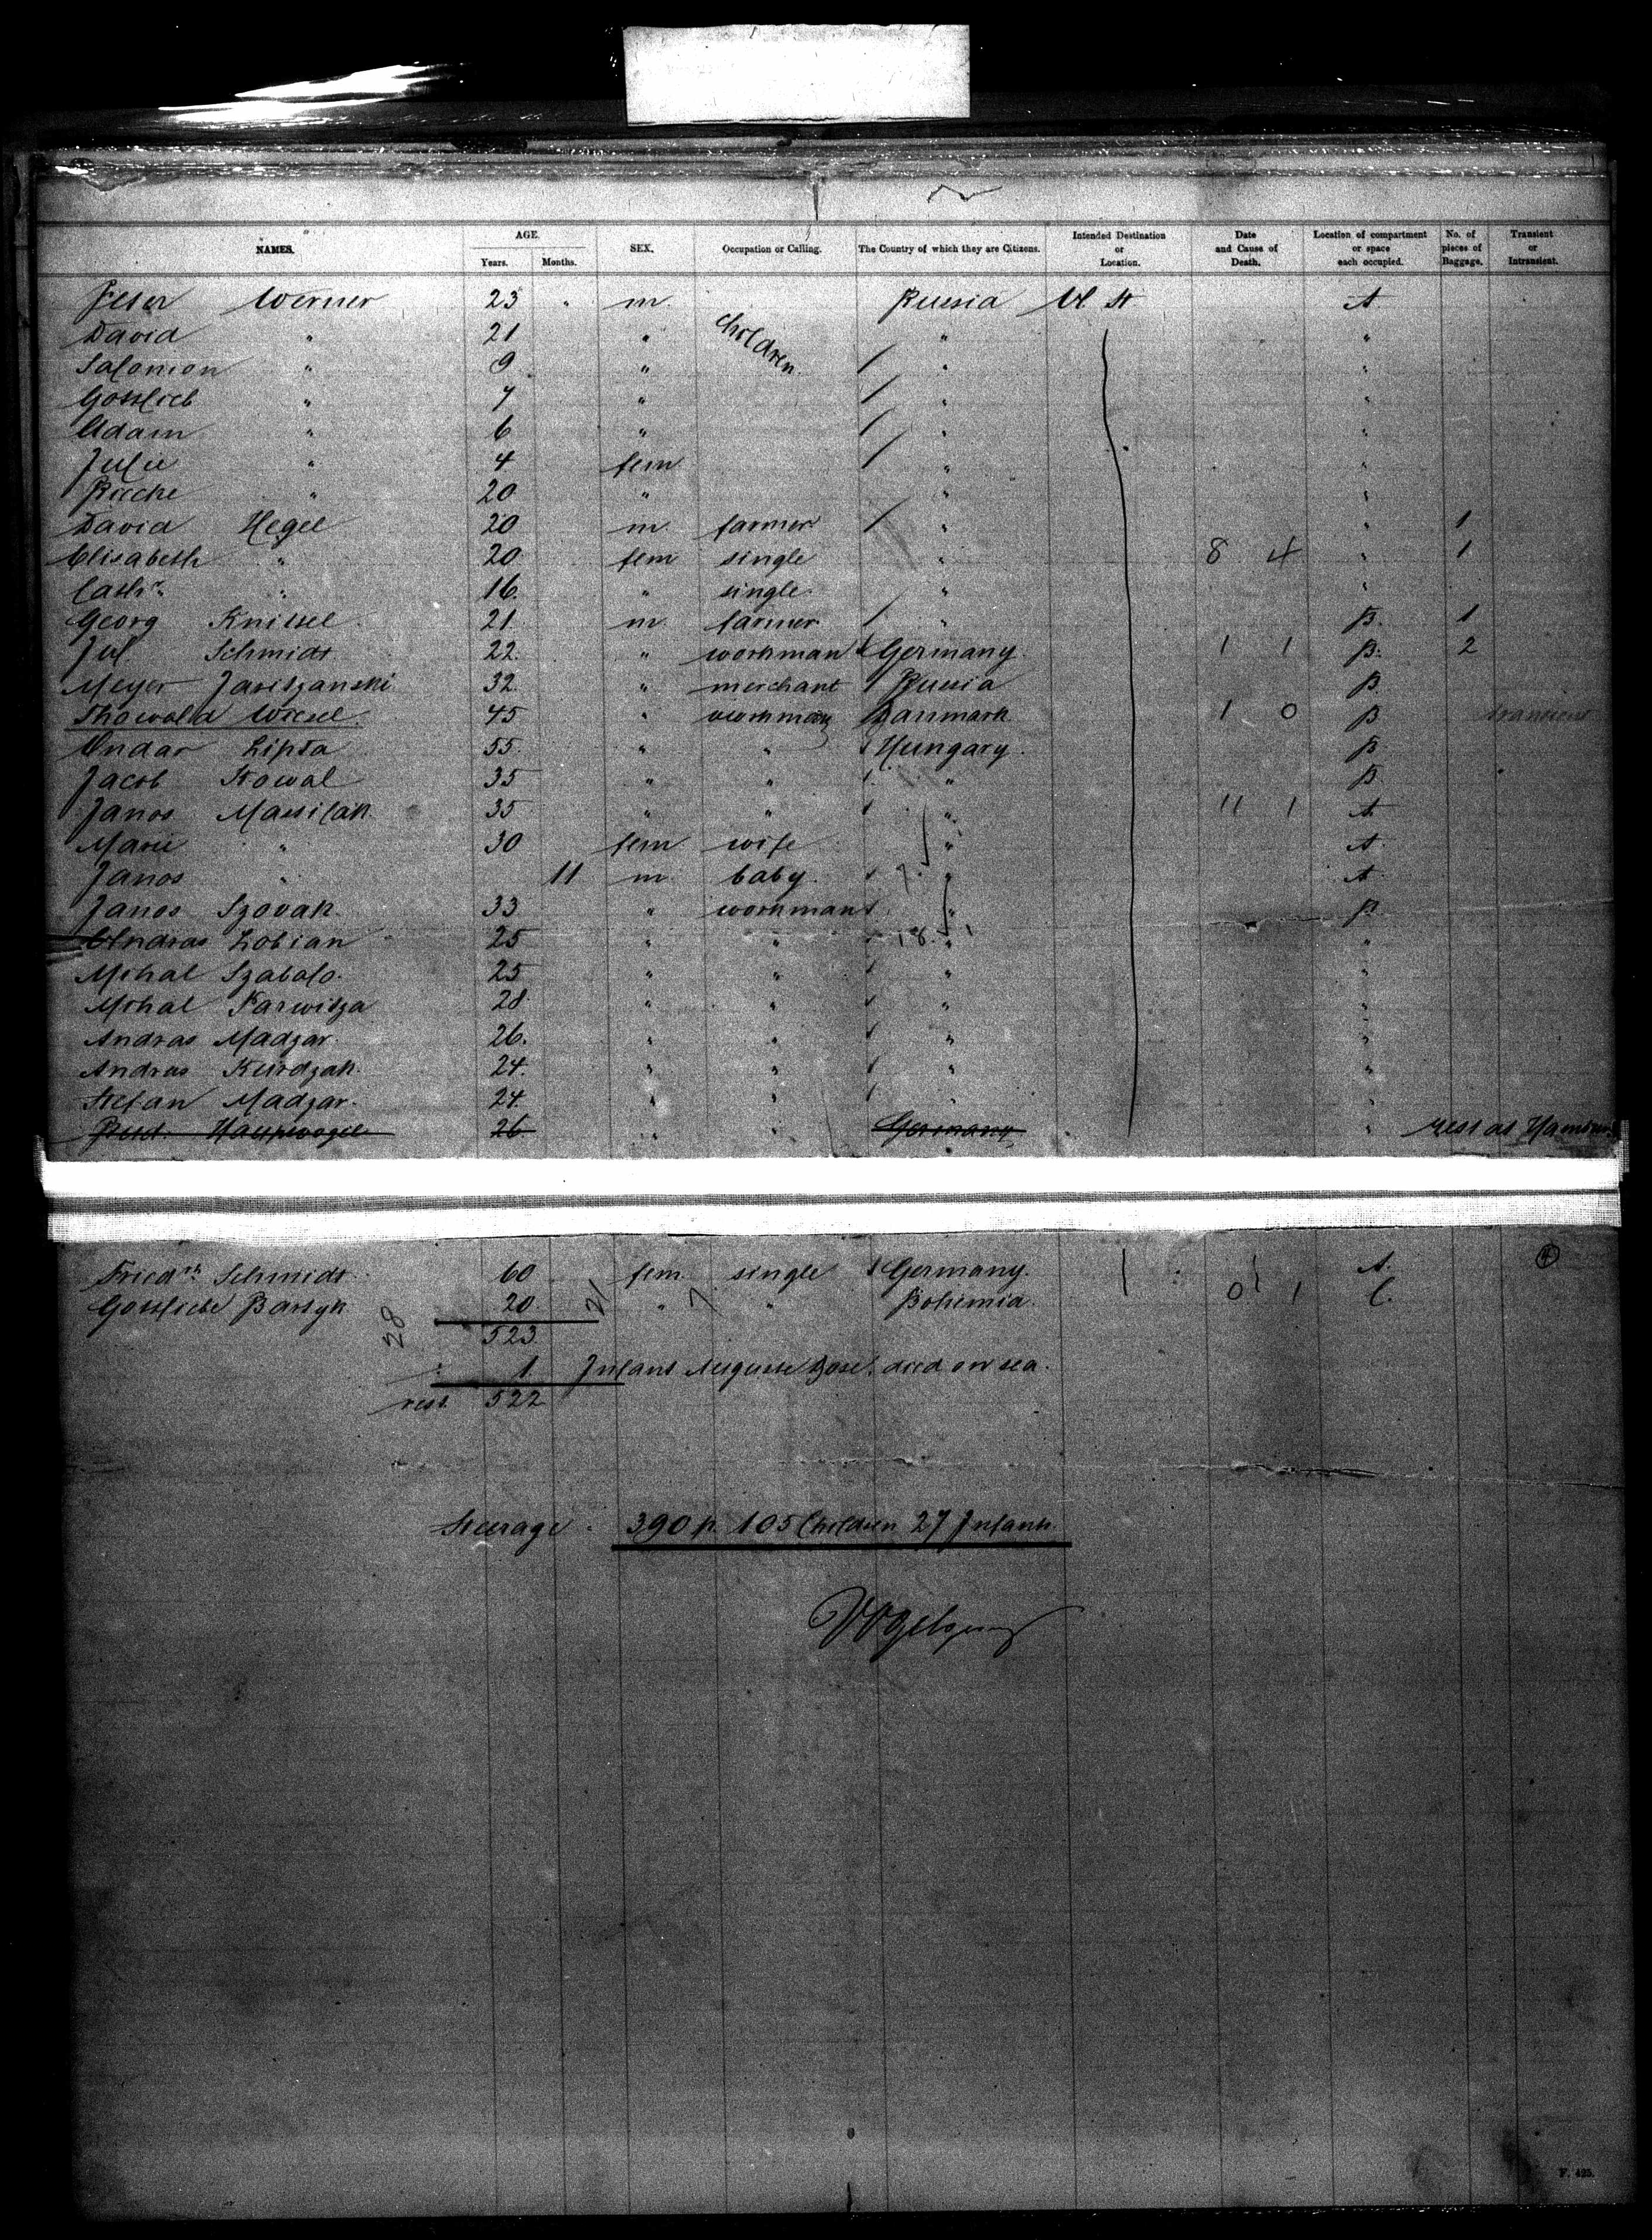 NAMES. AGE. Years. Months. SEX. Occupation or Calling. The Country of which they are Citizens. Intended Destination or Location. Date and Cause of Death. Location of compartment or space each occupied. No. of pieces of Baggage. Transient or Intransient.
Peter Werner 23 " m Russia U. St A.
David " 21 " children " "
Salomon " 9 " " "
Gottlieb " 7 " " "
Adam " 6 " " "
Julie " 4 fem " "
" 20 " " "
David Hegel 20 m farmer " " 1
Elisabeth " 20 fem single " 8 4 " 1
Cathr. " 16. " single " "
Georg Knittel 21 m farmer " B. 1
Jul. Schmidt 22. " workman Germany. 1 1 B. 2
Meyer 32. " merchant Russia B.
Thowald Wiesel 45 " workman Danmark 1 0 B transient
Lipta 55. " " Hungary. B
Jacob Kowal 35 " " " B
Janos Massilak 35 " " " 11 1 A.
Marie " 30 fem wife " A.
Janos " 11 m baby. " A
Janos Szovak. 33 " workman " B
Andras Lobian 25 " " " "
Mihal Szabolo. 25 " " " "
Mihal Karwitza 28 " " " "
Andras Madzar. 26. " " " "
Andras Kurdzak. 24. " " " "
Stefan Madzar. 24. " " " "
26 Germany " rest at Hamburg
Friedr. Schmidt 60 fem. single Germany. 1 A. 4
Gottliebe Bartyk 20 " " Bohemia. 0 1 C.
28 523 21 7
1. Infant Auguste died on sea.
rest. 522
Steerage. 390 p. 105 Children 27 Infants.
Vogelgesang
F. 425.